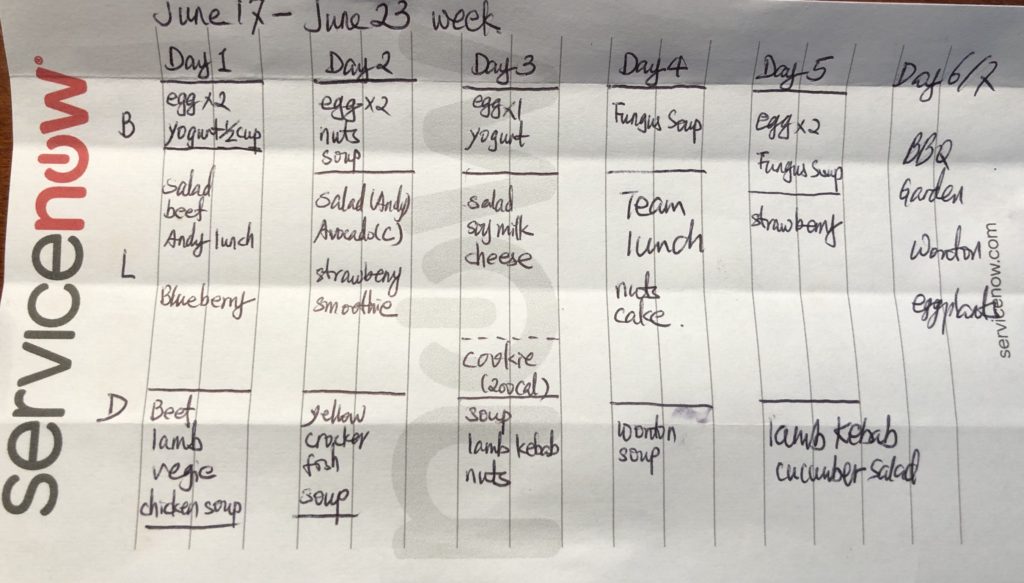 June 17 - June 23 week
Day 1
Day 2
Day 3
Day 4
Day 5
Day 6/7
B
egg x2
yogurt ½ cup
egg x2
nuts
soup
egg x1
yogurt
Fungus Soup
egg x2
Fungus Soup
L
Salad
beef
Andy lunch
Blueberry
Salad (Andy)
Avocado (C)
strawberry
smoothie
salad
soy milk
cheese
cookie
(200cal)
Team
lunch
nuts
cake.
strawberry
BBQ
Garden
Wonton
eggplants
D
Beef
lamb
vegie
chicken soup
yellow
crocker
fish
soup
soup
lamb kebab
nuts
wonton
soup
lamb kebab
cucumber salad
servicenow
servicenow.com
now